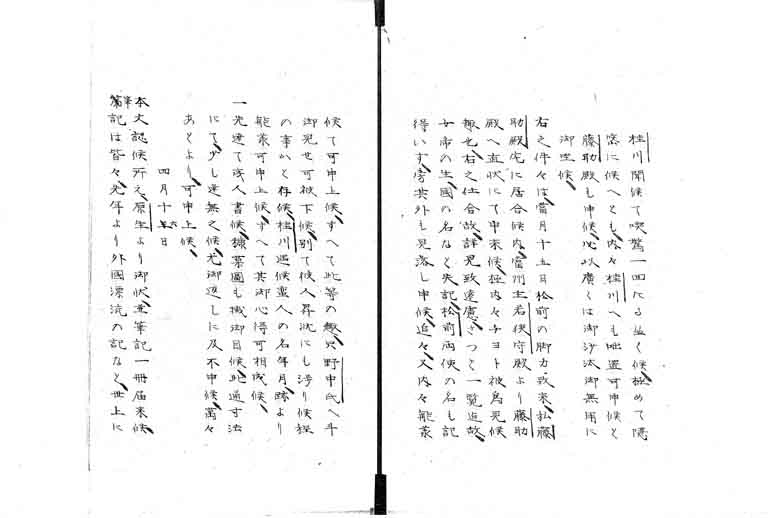 桂川聞候て喫驚一四たる並く候極めて隠
密に候へとも内々桂川へも咄置可申候と
藤助殿も申候此以廣くは御沙汰御無用に
御座候
右之件々は當月十五日松前の脚力致来私藤
助殿宅に居合候内當州主若狭守殿より藤助
殿へ直状にて申来候極内々チヨト被為見候
趣也右之仕合故詳見致遠慮さつと一覧迄故
女帝の生國の名など失記松前両使の名も記
得いす旁其外も見落し申候追々又内々能承
候て可申上候すへて此等の趣只野申氏へ斗
御見せ可被下候別て彼人昇沈にも渉り候極
の事かと存候桂川逗候蛮人の名年月跡より
能承可申上候すへて其御心得可相成候
一先達て浅人書候様墓圖も掛御目候此通寸法
にて少も違無之候尤御返しに及不申候萬々
あとより可申上候
四月十六日
本文認候所え原生より御状並筆記一冊届来候
筆記は皆々先年より外國漂流の記など世上に